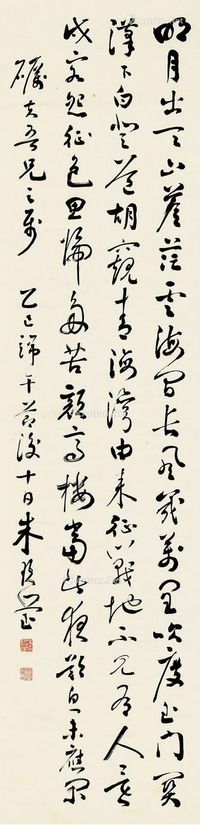 明月出天山蒼茫雲海間長風幾萬里吹度玉門關
漢下白登道胡窺青海灣由來征戰地不見有人還
戍客望邊色思歸多苦顏高樓當此夜歎息未應閑
礪夫吾兄之屬 乙巳端午節後十日朱玖瑩